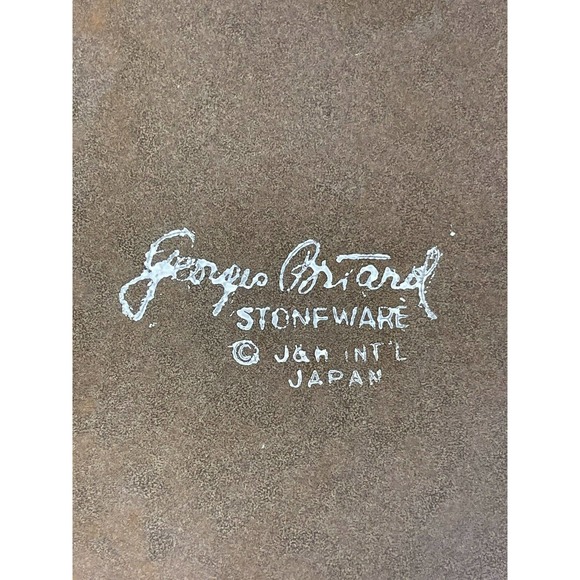 Georges Briard
STONEWARE
© J&H INT'L
JAPAN